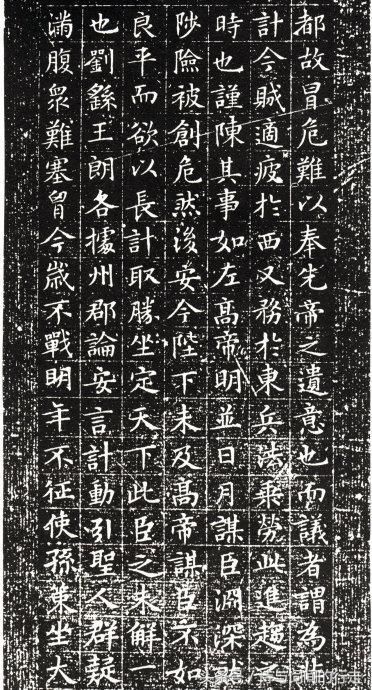 都故冒危難以奉先帝之遺意也而議者謂為非
計今賊適疲於西又務於東兵法乘勞此進趨之
時也謹陳其事如左髙帝明並日月謀臣淵深然
陟險被創危然後安今陛下未及髙帝謀臣不如
良平而欲以長計取勝坐定天下此臣之未解一
也劉繇王朗各據州郡論安言計動引聖人群疑
滿腹衆難塞胷今歲不戰明年不征使孫策坐大